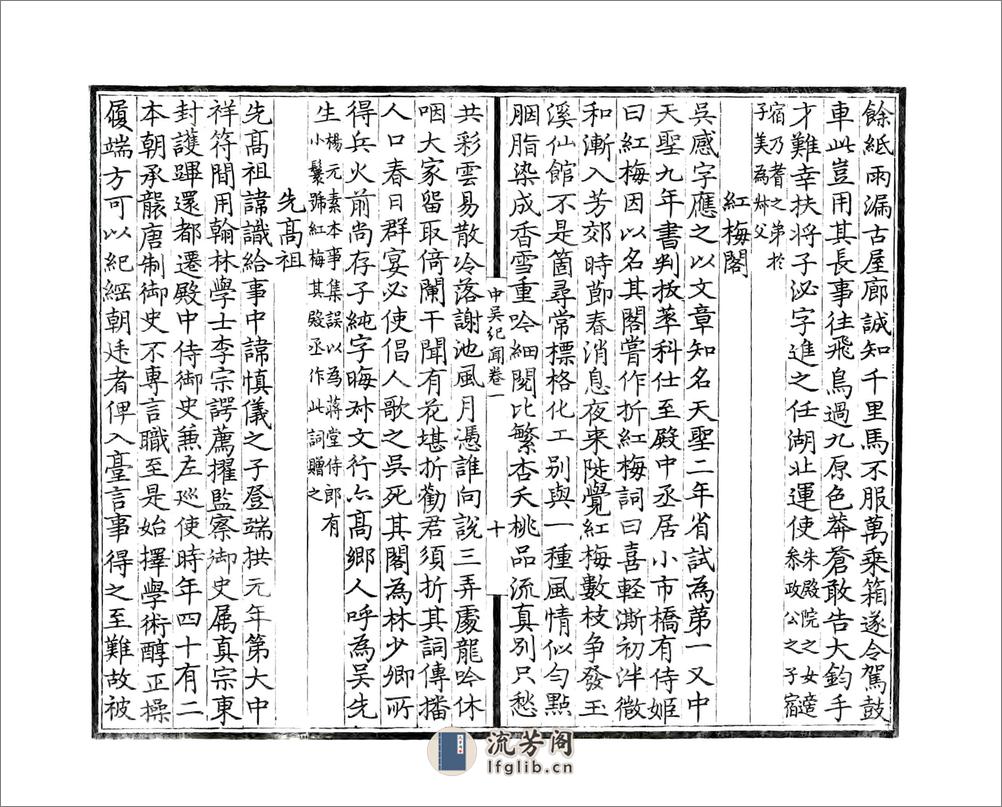 餘紙雨漏古屋廊誠知千里馬不服萬乘箱遂令駕鼓
車此豈用其長事往飛鳥過九原色莽蒼敢告大鈞手
才難幸扶將子泌字進之任湖北運使朱殿院之女適
叅政公之子宿
宿乃耆之弟於
子美為叔父
紅梅閣
吳感字應之以文章知名天聖二年省試為第一又中
天聖九年書判拔萃科仕至殿中丞居小市橋有侍姬
曰紅梅因以名其閣嘗作折紅梅詞曰喜輕澌初泮微
和漸入芳郊時節春消息夜来陡覺紅梅數枝争發玉
溪仙館不是箇尋常標格化工别與一種風情似勻點
胭脂染成香雪重吟細閱比繁杏夭桃品流真别只愁
共彩雲易散冷落謝池風月憑誰向說三弄處龍吟休
咽大家畱取倚闌干聞有花堪折勸君須折其詞傳播
人口春日群宴必使倡人歌之吳死其閣為林少卿所
得兵火前尚存子純字晦叔文行亦髙鄉人呼為吳先
生楊元素本事集誤以為蔣堂侍郎有
小鬟號紅梅其殿丞作此詞贈之
先髙祖
先髙祖諱識給事中諱慎儀之子登端拱元年第大中
祥符間用翰林學士李宗諤薦擢監察御史属真宗東
封護蹕還都遷殿中侍御史兼左廵使時年四十有二
本朝承襲唐制御史不專言職至是始擇學術醇正操
履端方可以紀綱朝廷者俾入臺言事得之至難故被
中吳紀聞卷一
十
流芳阁
lfglib.cn